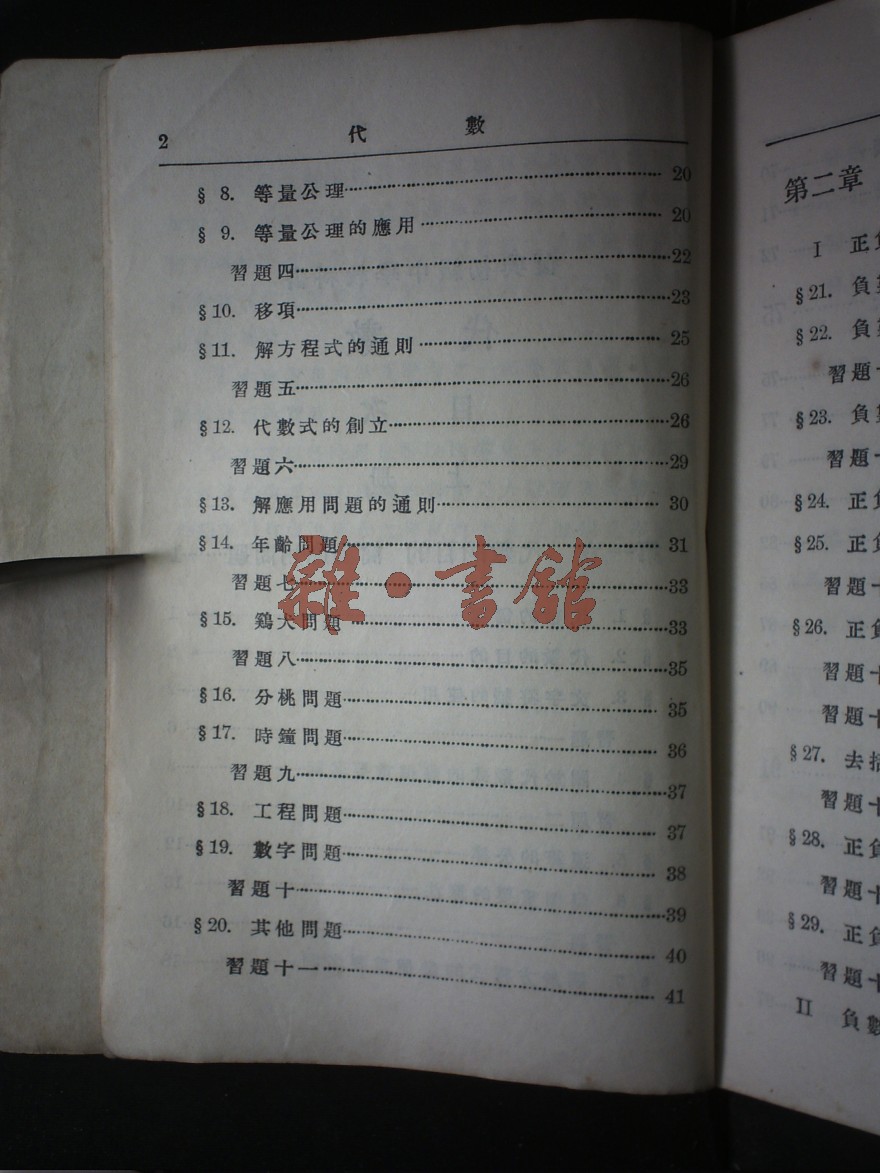 2 代 數
§ 8. 等量公理 20
§ 9. 等量公理的應用 20
習題四 22
§10. 移項 23
§11. 解方程式的通則 25
習題五 26
§12. 代數式的創立 26
習題六 29
§13. 解應用問題的通則 30
§14. 年齡問題 31
習題七 33
§15. 鷄犬問題 33
習題八 35
§16. 分桃問題 35
§17. 時鐘問題 36
習題九 37
§18. 工程問題 37
§19. 數字問題 38
習題十 39
§20. 其他問題 40
習題十一 41
雜·書館
第二章
I 正
§21. 負
§22. 負
習題
§23. 負
習題
§24. 正
§25. 正
習題
§26. 正
習題
習題
§27. 去
習題
§28. 正
習題
§29. 正
習題
II 負數